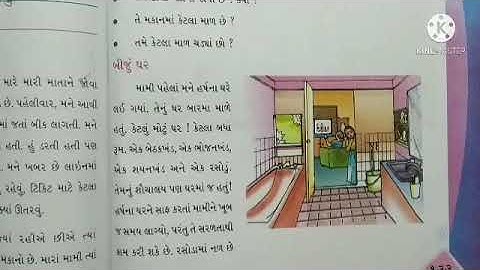 • તે મકાનમાં કેટલા માળ છે ?
• તમે કેટલા માળ ચડ્યાં છો ?
બીજું ઘર
મામી પહેલાં મને હર્ષના ઘરે
લઈ ગયાં. તેનું ઘર બારમા માળે
હતું. કેટલું મોટું ઘર ! કેટલા બધા
રૂમ. એક બેઠકખંડ, એક ભોજનખંડ,
એક શયનખંડ અને એક રસોડું.
તેમનું શૌચાલય પણ ઘરમાં જ હતું!
હર્ષના ઘરને સાફ કરતાં મામીને ખૂબ
જ સમય લાગ્યો, પરંતુ તે સરળતાથી
કામ કરી શકે છે. રસોડામાં નળ છે
મારે મારી માતાને જોવા
છે. પહેલીવાર, મને આવી
માં જતાં બીક લાગતી. મને
હતી. હું ડરતી હતી પણ
. મને ખબર છે લાઇનમાં
રહેવું, ટિકિટ માટે કેટલા
ક્યાં ઊતરવું.
જ્યાં રહીએ છીએ ત્યાં
મકાનો છે. મારાં મામી ત્યાં
KINEMASTER